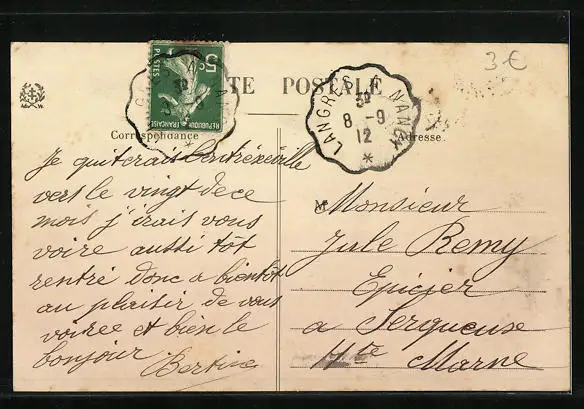 3€
5c
POSTES
REPUBLIQUE FRANÇAISE
CARTE POSTALE
LANGRES A NANCY
3º
8-9
12
*
Correspondance
Adresse.
Je quiterais Contréxeville
vers le vingt de ce
mois j'irais vous
voire aussi tot
rentré donc a bientot
au plaisir de vous
voiree et bien le
bonjour Bertine
M Monsieur
Jule Remy
Epicier
a Serqueuse
Hte Marne